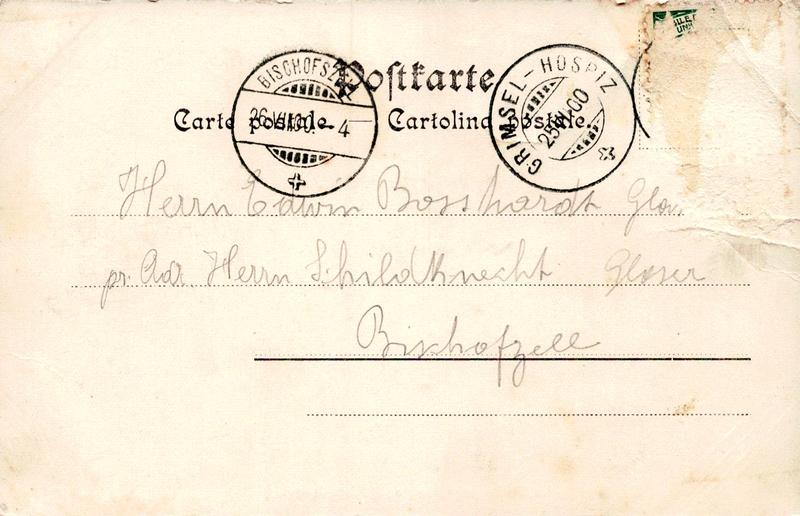 Postkarte
Carte postale. Cartolina postale.
BISCHOFSZELL
26.VII.00.–4
GRIMSEL-HOSPIZ
25.VII.00
Herrn Edwin Bosshardt
pr. Adr. Herrn Schildknecht Glaser
Bischofzell